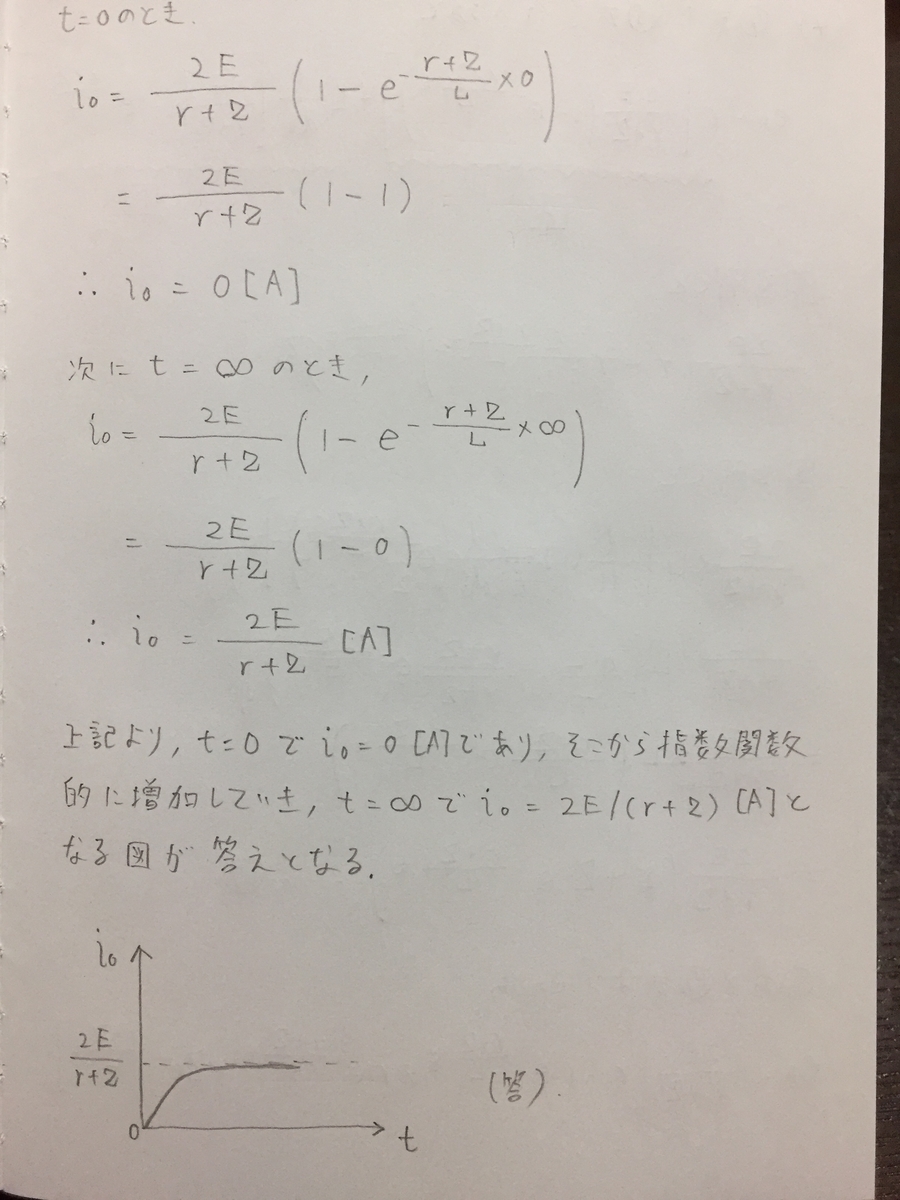 t=0のとき.
i₀ = 2E/(r+2) (1 − e^(−(r+2)/L ×0))
= 2E/(r+2) (1−1)
∴ i₀ = 0[A]
次に t=∞ のとき,
i₀ = 2E/(r+2) (1 − e^(−(r+2)/L ×∞))
= 2E/(r+2) (1−0)
∴ i₀ = 2E/(r+2) [A]
上記より, t=0 で i₀=0 [A]であり, そこから指数関数
的に増加していき, t=∞で i₀ = 2E/(r+2) [A]と
なる図が 答えとなる.
i₀
2E/(r+2)
(答).
0
t